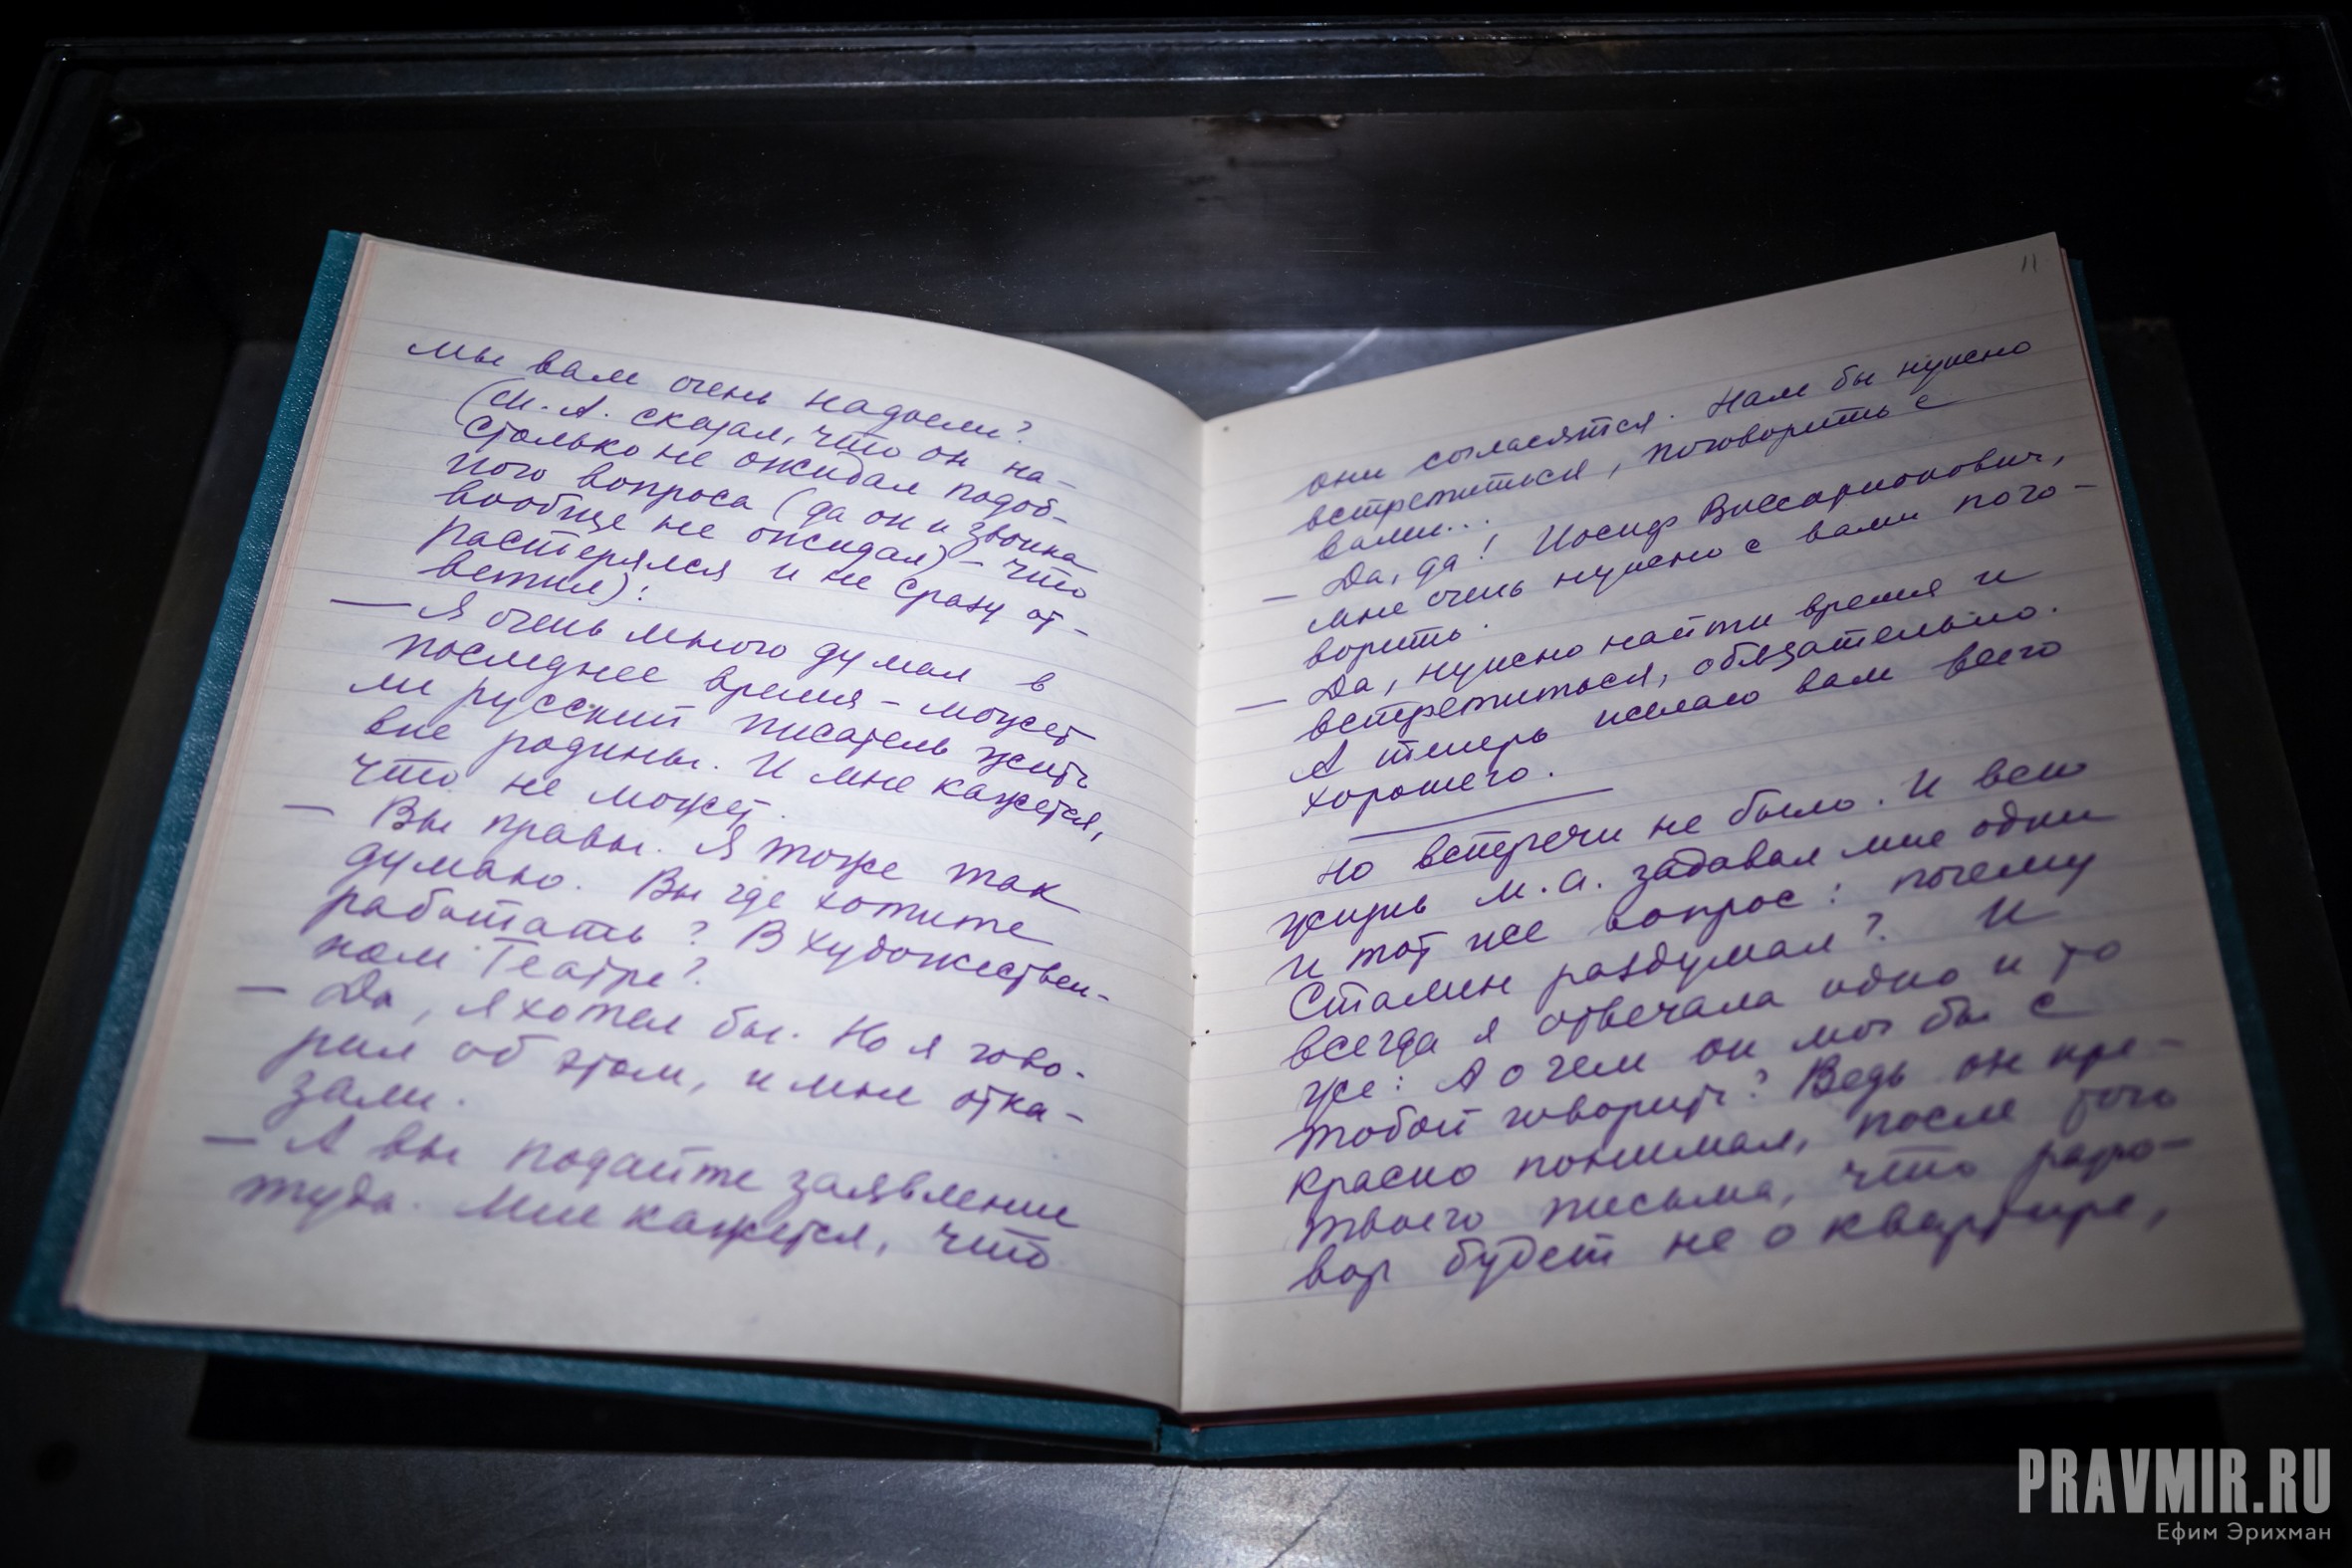 мы вам очень надоели?
(М.А. сказал, что он на-
столько не ожидал подоб-
ного вопроса (да он и звонка
вообще не ожидал) – что
растерялся и не сразу от-
ветил):
— Я очень много думал в
последнее время – может
ли русский писатель жить
вне родины. И мне кажется,
что не может.
— Вы правы. Я тоже так
думаю. Вы где хотите
работать? В Художествен-
ном Театре?
— Да, я хотел бы. Но я гово-
рил об этом, и мне отка-
зали.
— А вы подайте заявление
туда. Мне кажется, что
11
они согласятся. Нам бы нужно
встретиться, поговорить с
вами...
— Да, да! Иосиф Виссарионович,
мне очень нужно с вами пого-
ворить.
— Да, нужно найти время и
встретиться, обязательно.
А теперь желаю вам всего
хорошего.
Но встречи не было. И всю
жизнь М.А. задавал мне один
и тот же вопрос: почему
Сталин раздумал? И
всегда я отвечала одно и то
же: А о чем он мог бы с
тобой говорить? Ведь он пре-
красно понимал, после того
твоего письма, что разго-
вор будет не о квартире,
PRAVMIR.RU
Ефим Эрихман